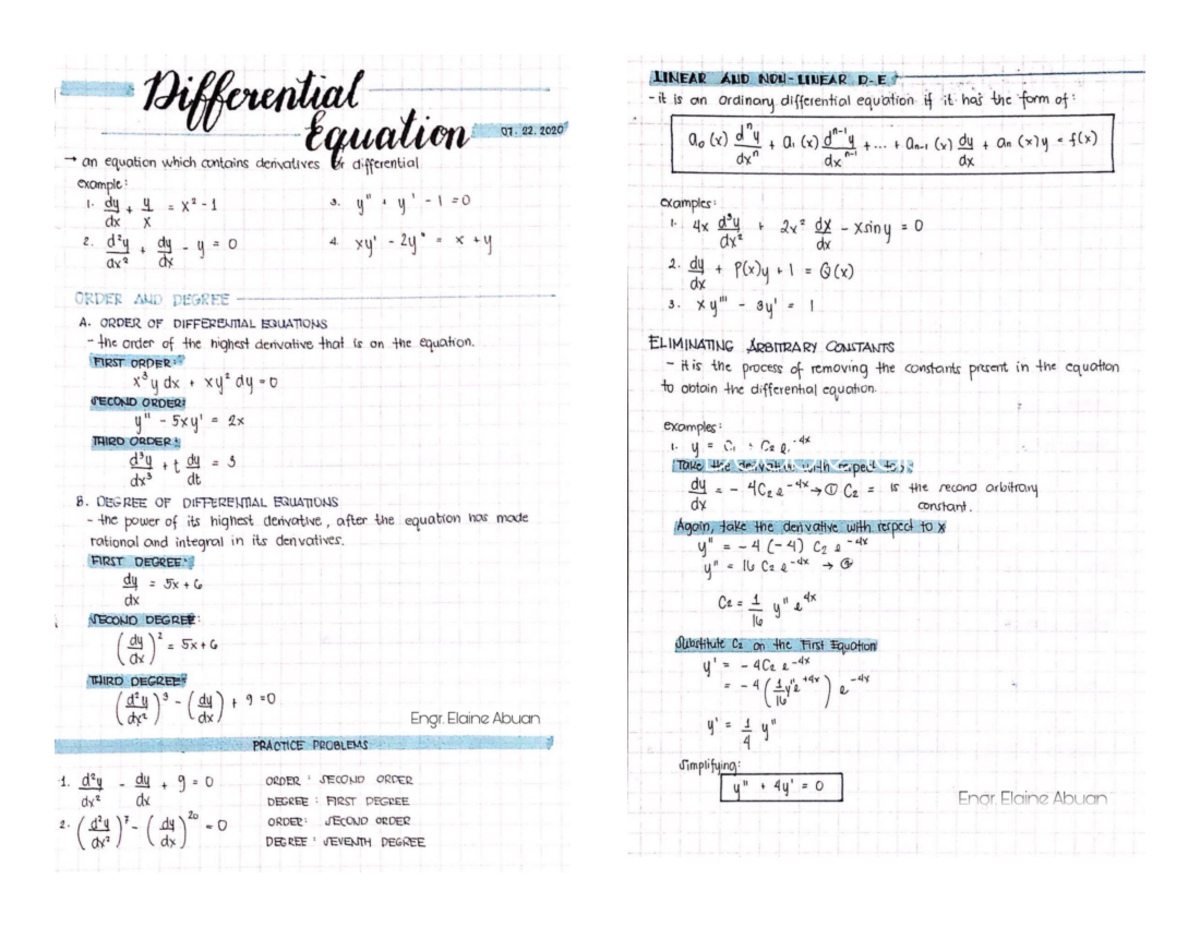 Differential
Equation 07.22.2020
→ an equation which contains derivatives or differential
example:
1. dy/dx + y/x = x² - 1
3. y" + y' - 1 = 0
2. d²y/dx² + dy/dx - y = 0
4. xy' - 2y" = x + y
ORDER AND DEGREE
A. ORDER OF DIFFERENTIAL EQUATIONS
- the order of the highest derivative that is on the equation.
FIRST ORDER:
x³y dx + xy² dy = 0
SECOND ORDER:
y" - 5xy' = 2x
THIRD ORDER:
d³y/dx³ + t dy/dt = 3
B. DEGREE OF DIFFERENTIAL EQUATIONS
- the power of its highest derivative, after the equation has made
rational and integral in its derivatives.
FIRST DEGREE:
dy/dx = 5x + 6
SECOND DEGREE:
(dy/dx)² = 5x + 6
THIRD DEGREE:
(d²y/dx²)³ - (dy/dx) + 9 = 0
Engr. Elaine Abuan
PRACTICE PROBLEMS
1. d²y/dx² - dy/dx + 9 = 0
ORDER: SECOND ORDER
DEGREE: FIRST DEGREE
2. (d²y/dx²)⁷ - (dy/dx)²⁰ = 0
ORDER: SECOND ORDER
DEGREE: SEVENTH DEGREE
LINEAR AND NON-LINEAR D-E
- it is an ordinary differential equation if it has the form of:
a₀(x) dⁿy/dxⁿ + a₁(x) dⁿ⁻¹y/dxⁿ⁻¹ + ... + aₙ₋₁(x) dy/dx + aₙ(x)y = f(x)
examples:
1. 4x d³y/dx² + 2x² dx/dx - xsiny = 0
2. dy/dx + P(x)y + 1 = Q(x)
3. xy''' - 3y' = 1
ELIMINATING ARBITRARY CONSTANTS
- it is the process of removing the constants present in the equation
to obtain the differential equation.
examples:
1. y = C₁ + C₂ e⁻⁴ˣ
Take the derivative with respect to
dy/dx = - 4C₂ e⁻⁴ˣ → ① C₂ = is the second arbitrary
constant.
Again, take the derivative with respect to x
y" = -4 (-4) C₂ e⁻⁴ˣ
y" = 16 C₂ e⁻⁴ˣ → ②
C₂ = 1/16 y" e⁴ˣ
Substitute C₂ on the First Equation
y' = - 4C₂ e⁻⁴ˣ
= - 4 (1/16 y"e⁺⁴ˣ) e⁻⁴ˣ
y' = 1/4 y"
Simplifying:
y" + 4y' = 0
Engr. Elaine Abuan